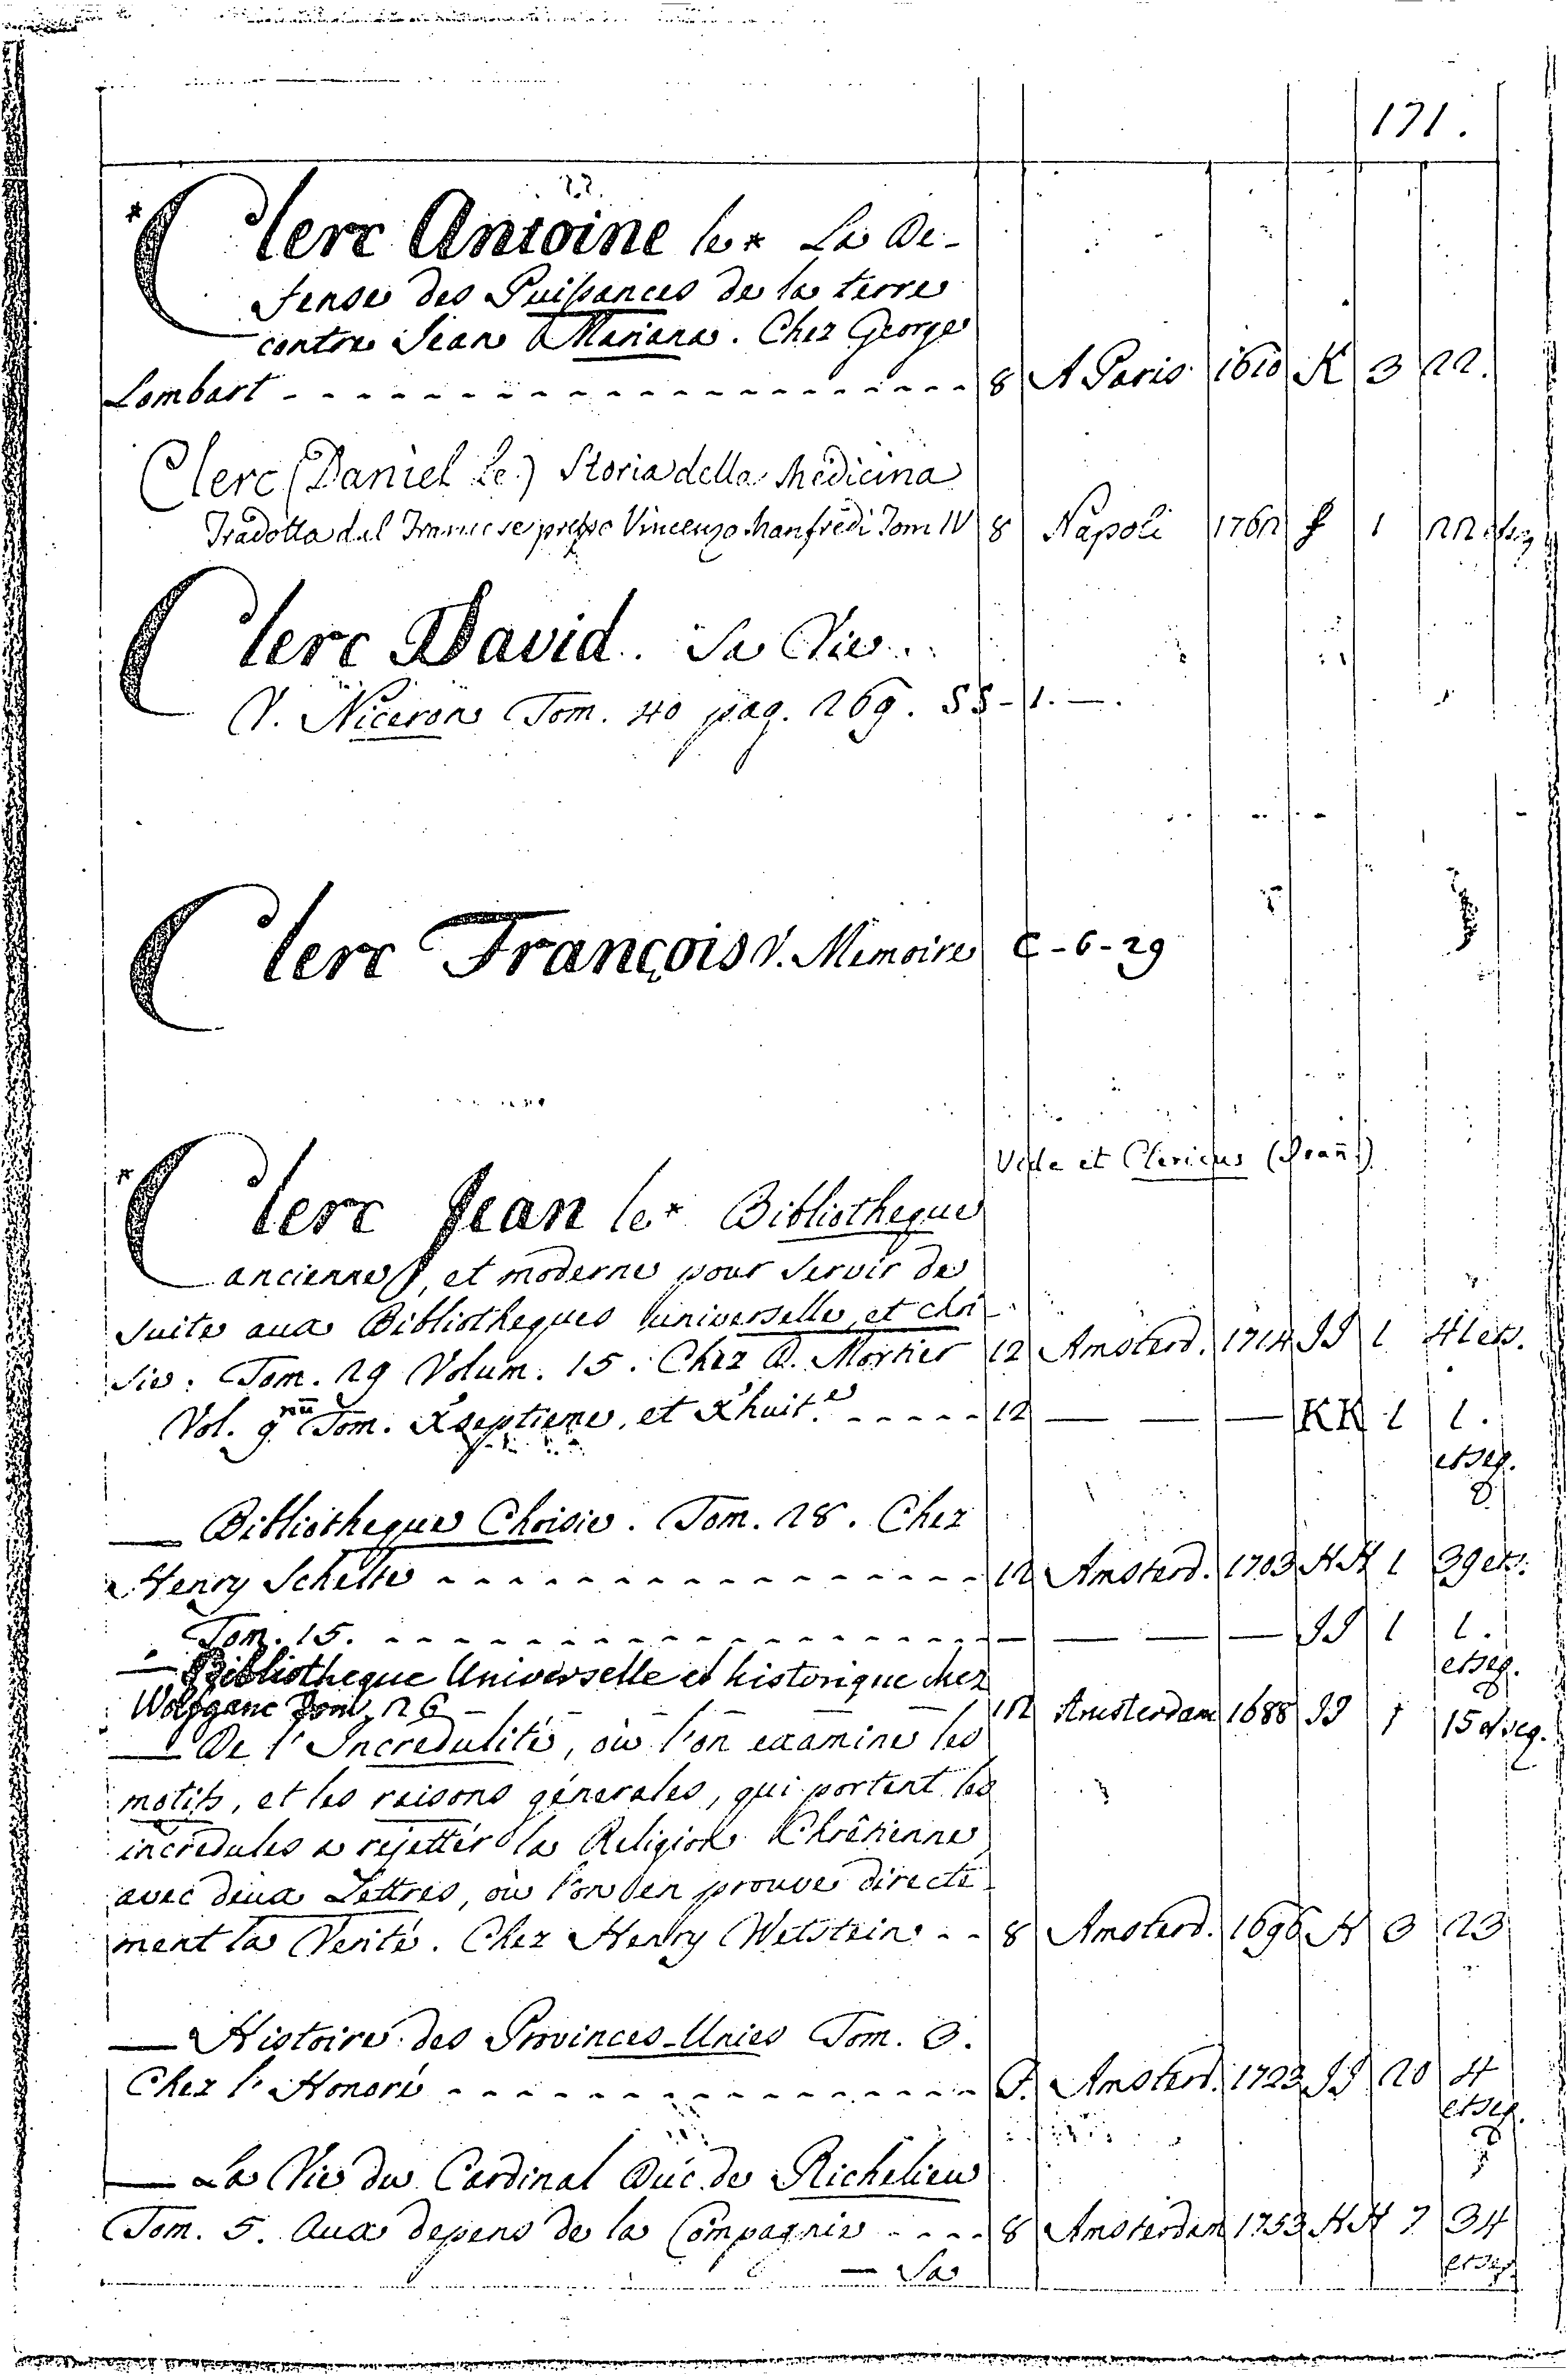 171.
*Clerc Antoine le* La De-
fense des Puissances de la terre
contre Jean Mariana. Chez George
Lombart - - - - 8 A Paris 1610 K 3 22.
Clerc (Daniel Le) Storia della Medicina
Tradotta dal Francese presso Vincenzo Manfredi Tom IV 8 Napoli 1762 f 1 22 seq
Clerc David. Sa Vie..
V. Niceron Tom. 40 pag. 269. SS - 1. - .
Clerc François V. Memoire C - 6 - 29
Vide et Clericus (Joan.)
*Clerc Jean le* Bibliotheque
ancienne, et moderne pour servir de
suite aux Bibliotheques universelle, et choi-
sie. Tom. 29 Volum. 15. Chez D. Mortier 12 Amsterd. 1714 JJ 1 41 ets.
Vol. 9 Tom. septieme, et huit.e - - - - - 12 — — — KK 1 1.
et seq.
— Bibliotheque Choisie. Tom. 28. Chez
Henry Schelte - - - - 12 Amsterd. 1703 HH 1 39 ets.
Tom. 15. - - - - — — — — JJ 1 1.
et seq.
— Bibliotheque Universelle et historique chez
Wolfganc Tom. 26 — 12 Amsterdam 1688 JJ 1 15 et seq.
— De l'Incredulité, où l'on examine les
motifs, et les raisons génerales, qui portent les
incredules a rejettér la Religion Chrêtienne
avec deux Lettres, où l'on en prouve directe
ment la Verité. Chez Henry Wetstein - - 8 Amsterd. 1696 H 3 23
— Histoire des Provinces-Unies Tom. 3.
Chez l'Honoré - - - - F. Amsterd. 1723 JJ 20 4
et seq.
— La Vie du Cardinal Duc de Richelieu
Tom. 5. Aux depens de la Compagnie - - - - 8 Amsterdam 1753 HH 7 34
et seq.
— Sa